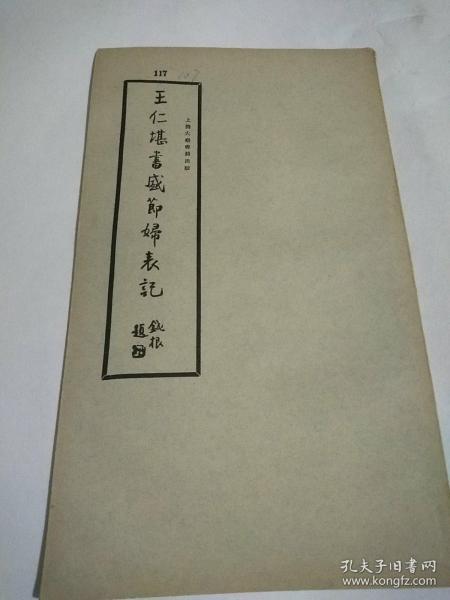 117
107
王仁堪書盛節婦表記
鐵根
題
孔夫子旧书网
www.kongfz.com